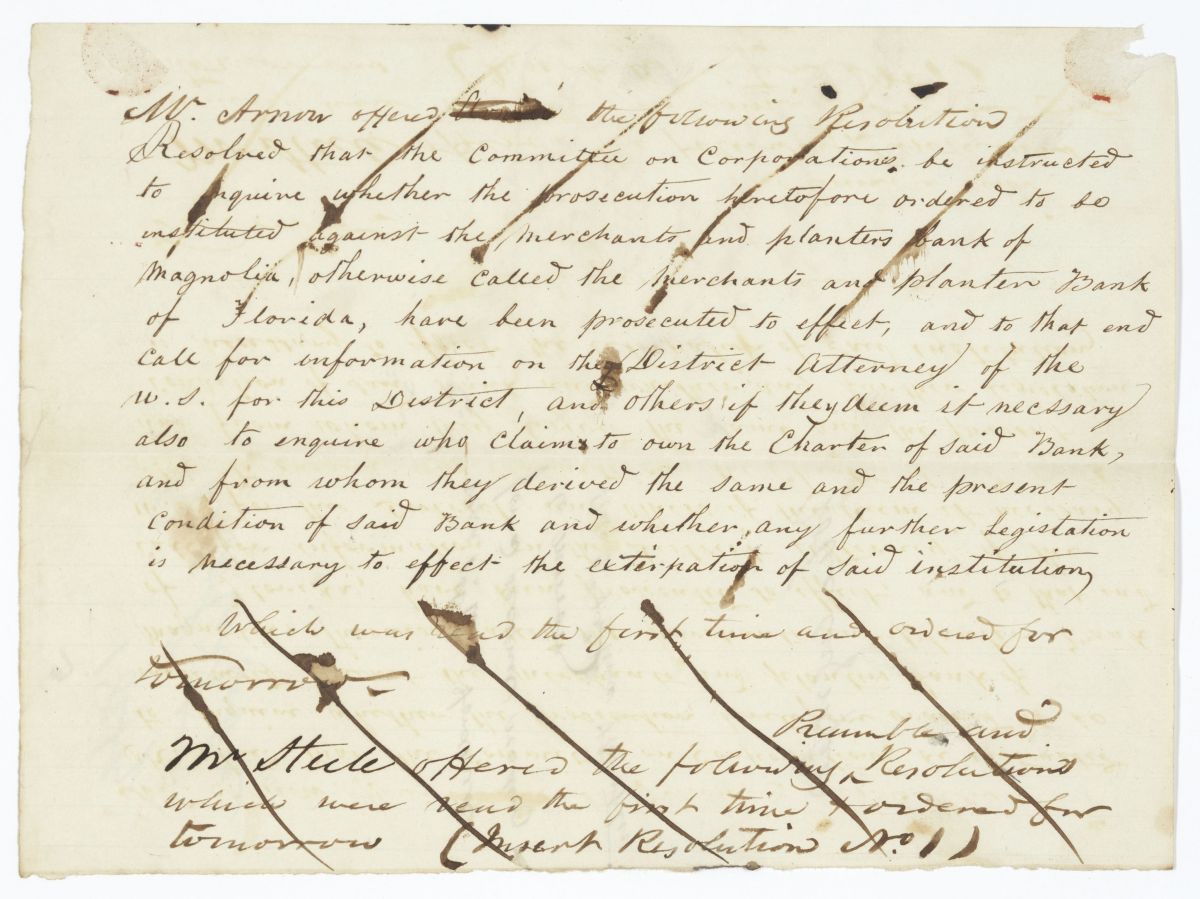 Mr. Arnow offered the following Resolution
Resolved that the Committee on Corporations be instructed
to enquire whether the prosecution heretofore ordered to be
instituted against the merchants and planters bank of
Magnolia, otherwise called the merchants and planters Bank
of Florida, have been prosecuted to effect, and to that end
call for information on the District Attorney of the
U.S. for this District, and others if they deem it necssary
also to enquire who claims to own the Charter of said Bank,
and from whom they derived the same and the present
condition of said Bank and whether any further Legistation
is necessary to effect the exterpation of said institution,
Which was read the first time and ordered for
tomorrow—
Preamble and
Mr Steele offered the following ^ Resolutions
which were read the first time & ordered for
tomorrow (Insert Resolution No. 1)